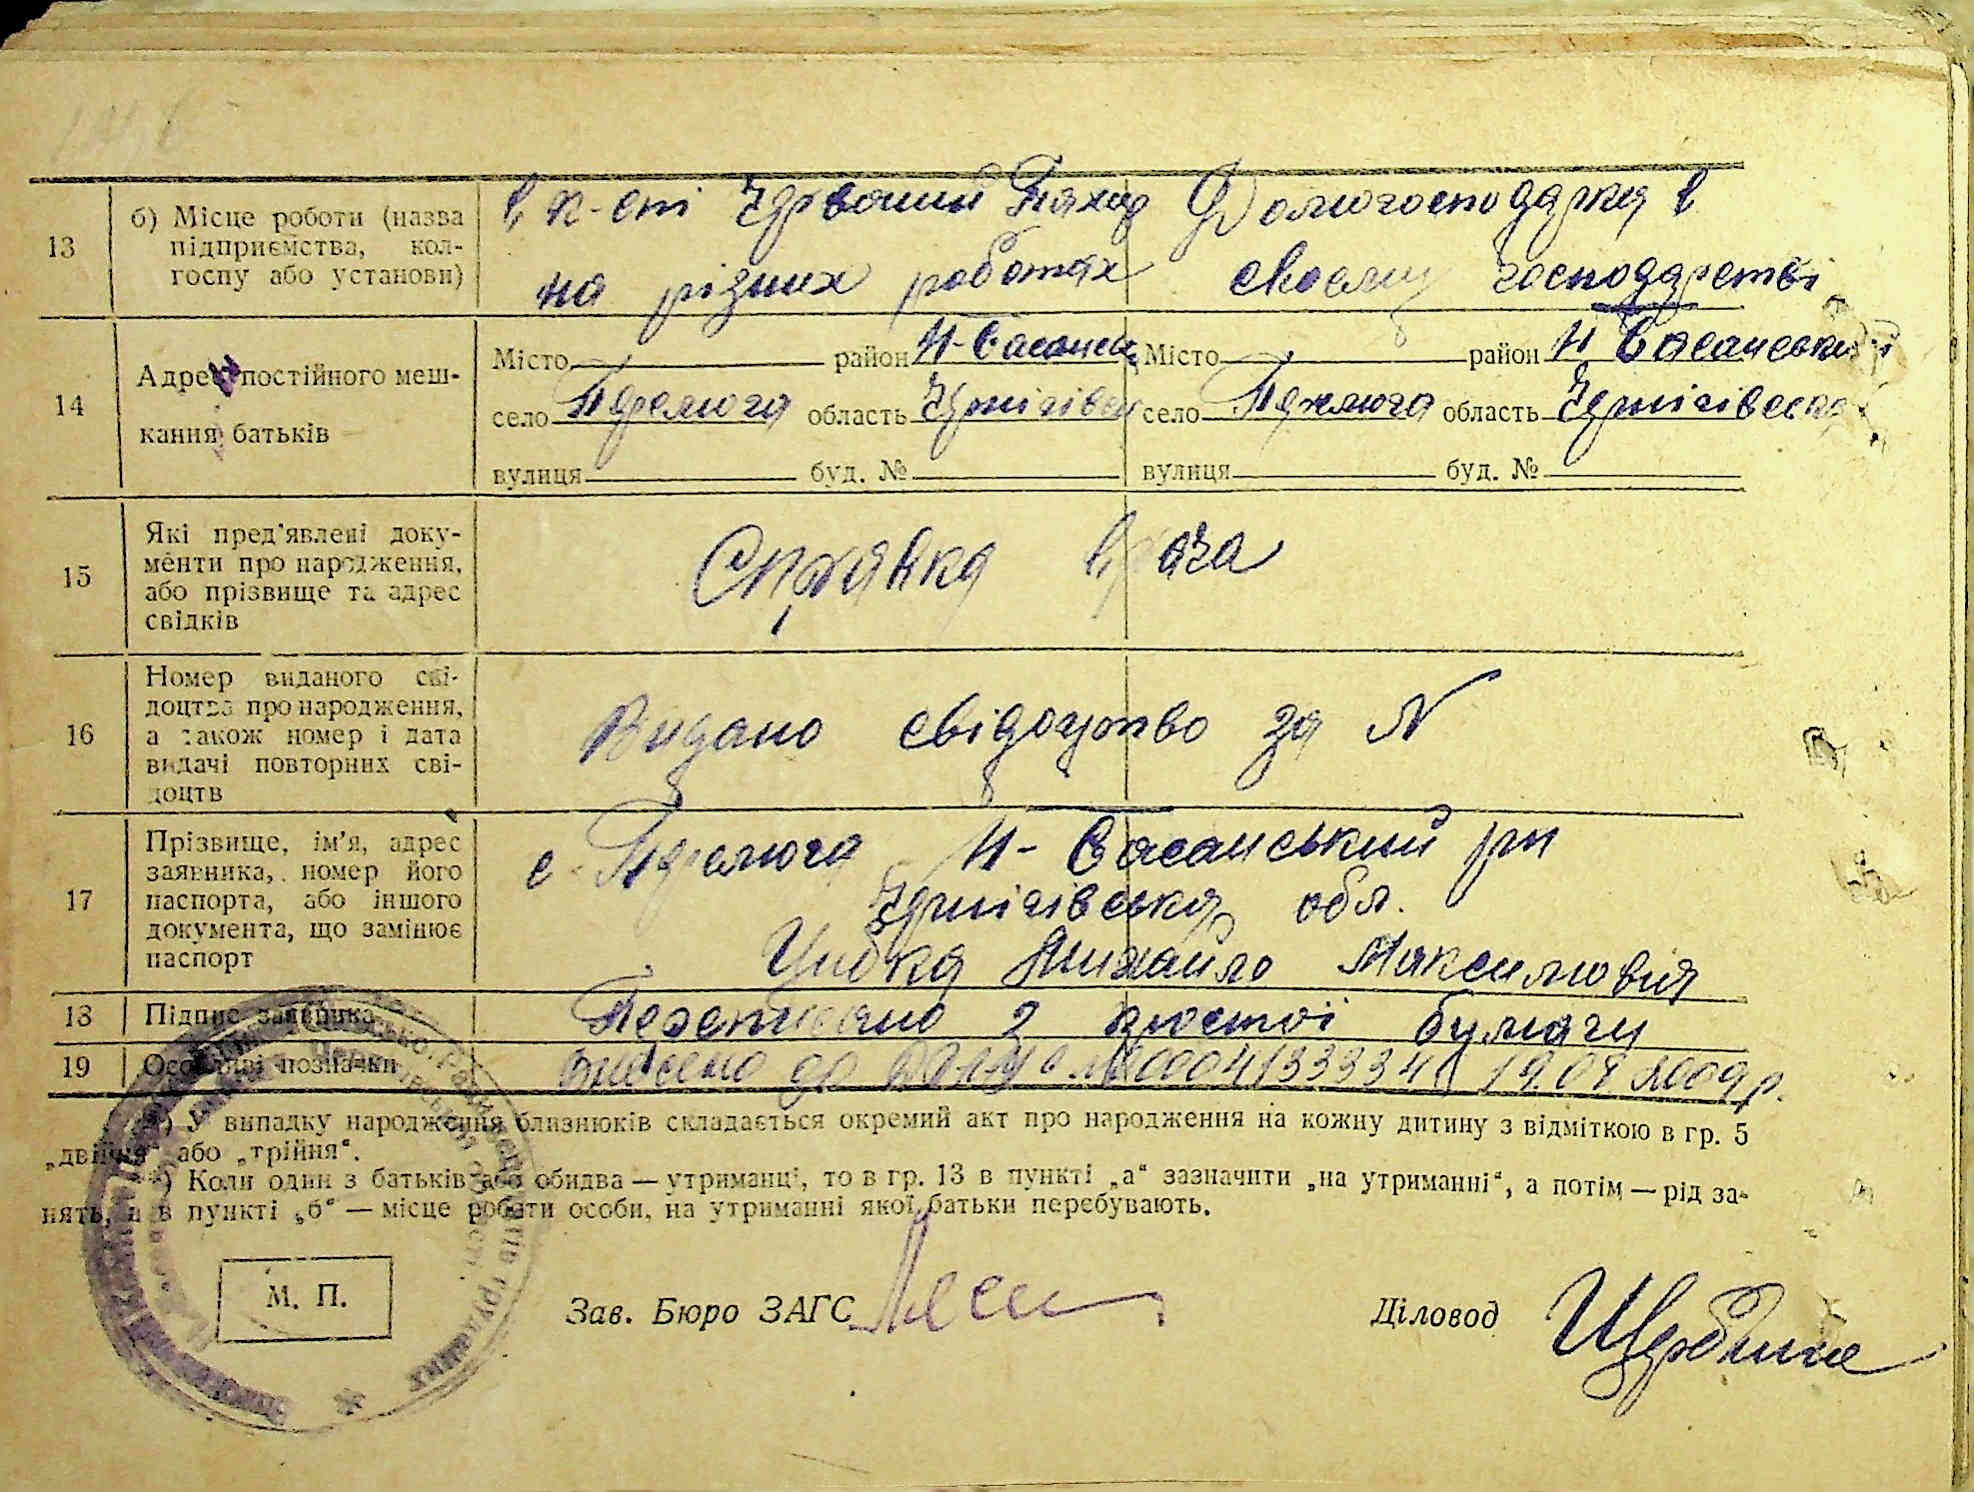 13
б) Місце роботи (назва
підприємства, кол-
госпу або установи)
в к-спі Червоний Пахар
на різних роботах
Домогосподарка в
своєму господарстві
14
Адрес постійного меш-
кання батьків
Місто район Н-Басанськ
село Перемога область Чернігівськ
вулиця буд. №
Місто район Н Басанський
село Перемога область Чернігівська
вулиця буд. №
15
Які пред'явлені доку-
менти про народження,
або прізвище та адрес
свідків
Справка врача
16
Номер виданого сві-
доцтва про народження,
а також номер і дата
видачі повторних сві-
доцтв
Видано свідоцтво за N
17
Прізвище, ім'я, адрес
заявника, номер його
паспорта, або іншого
документа, що замінює
паспорт
с. Перемога Н-Басанський рн
Чернігівська обл.
Цибка Михайло Максимовія
18
Підпис заявника
Переписано з простої бумаги
19
Особливі позначки
внесено до 00041333341 19.04 2009р.
*) У випадку народження близнюків складається окремий акт про народження на кожну дитину з відміткою в гр. 5
„двійня" або „трійня".
**) Коли один з батьків або обидва — утриманці, то в гр. 13 в пункті „а" зазначити „на утриманні", а потім — рід за-
нять, а в пункті „б" — місце роботи особи, на утриманні якої батьки перебувають.
М. П.
Зав. Бюро ЗАГС
Діловод Щербина